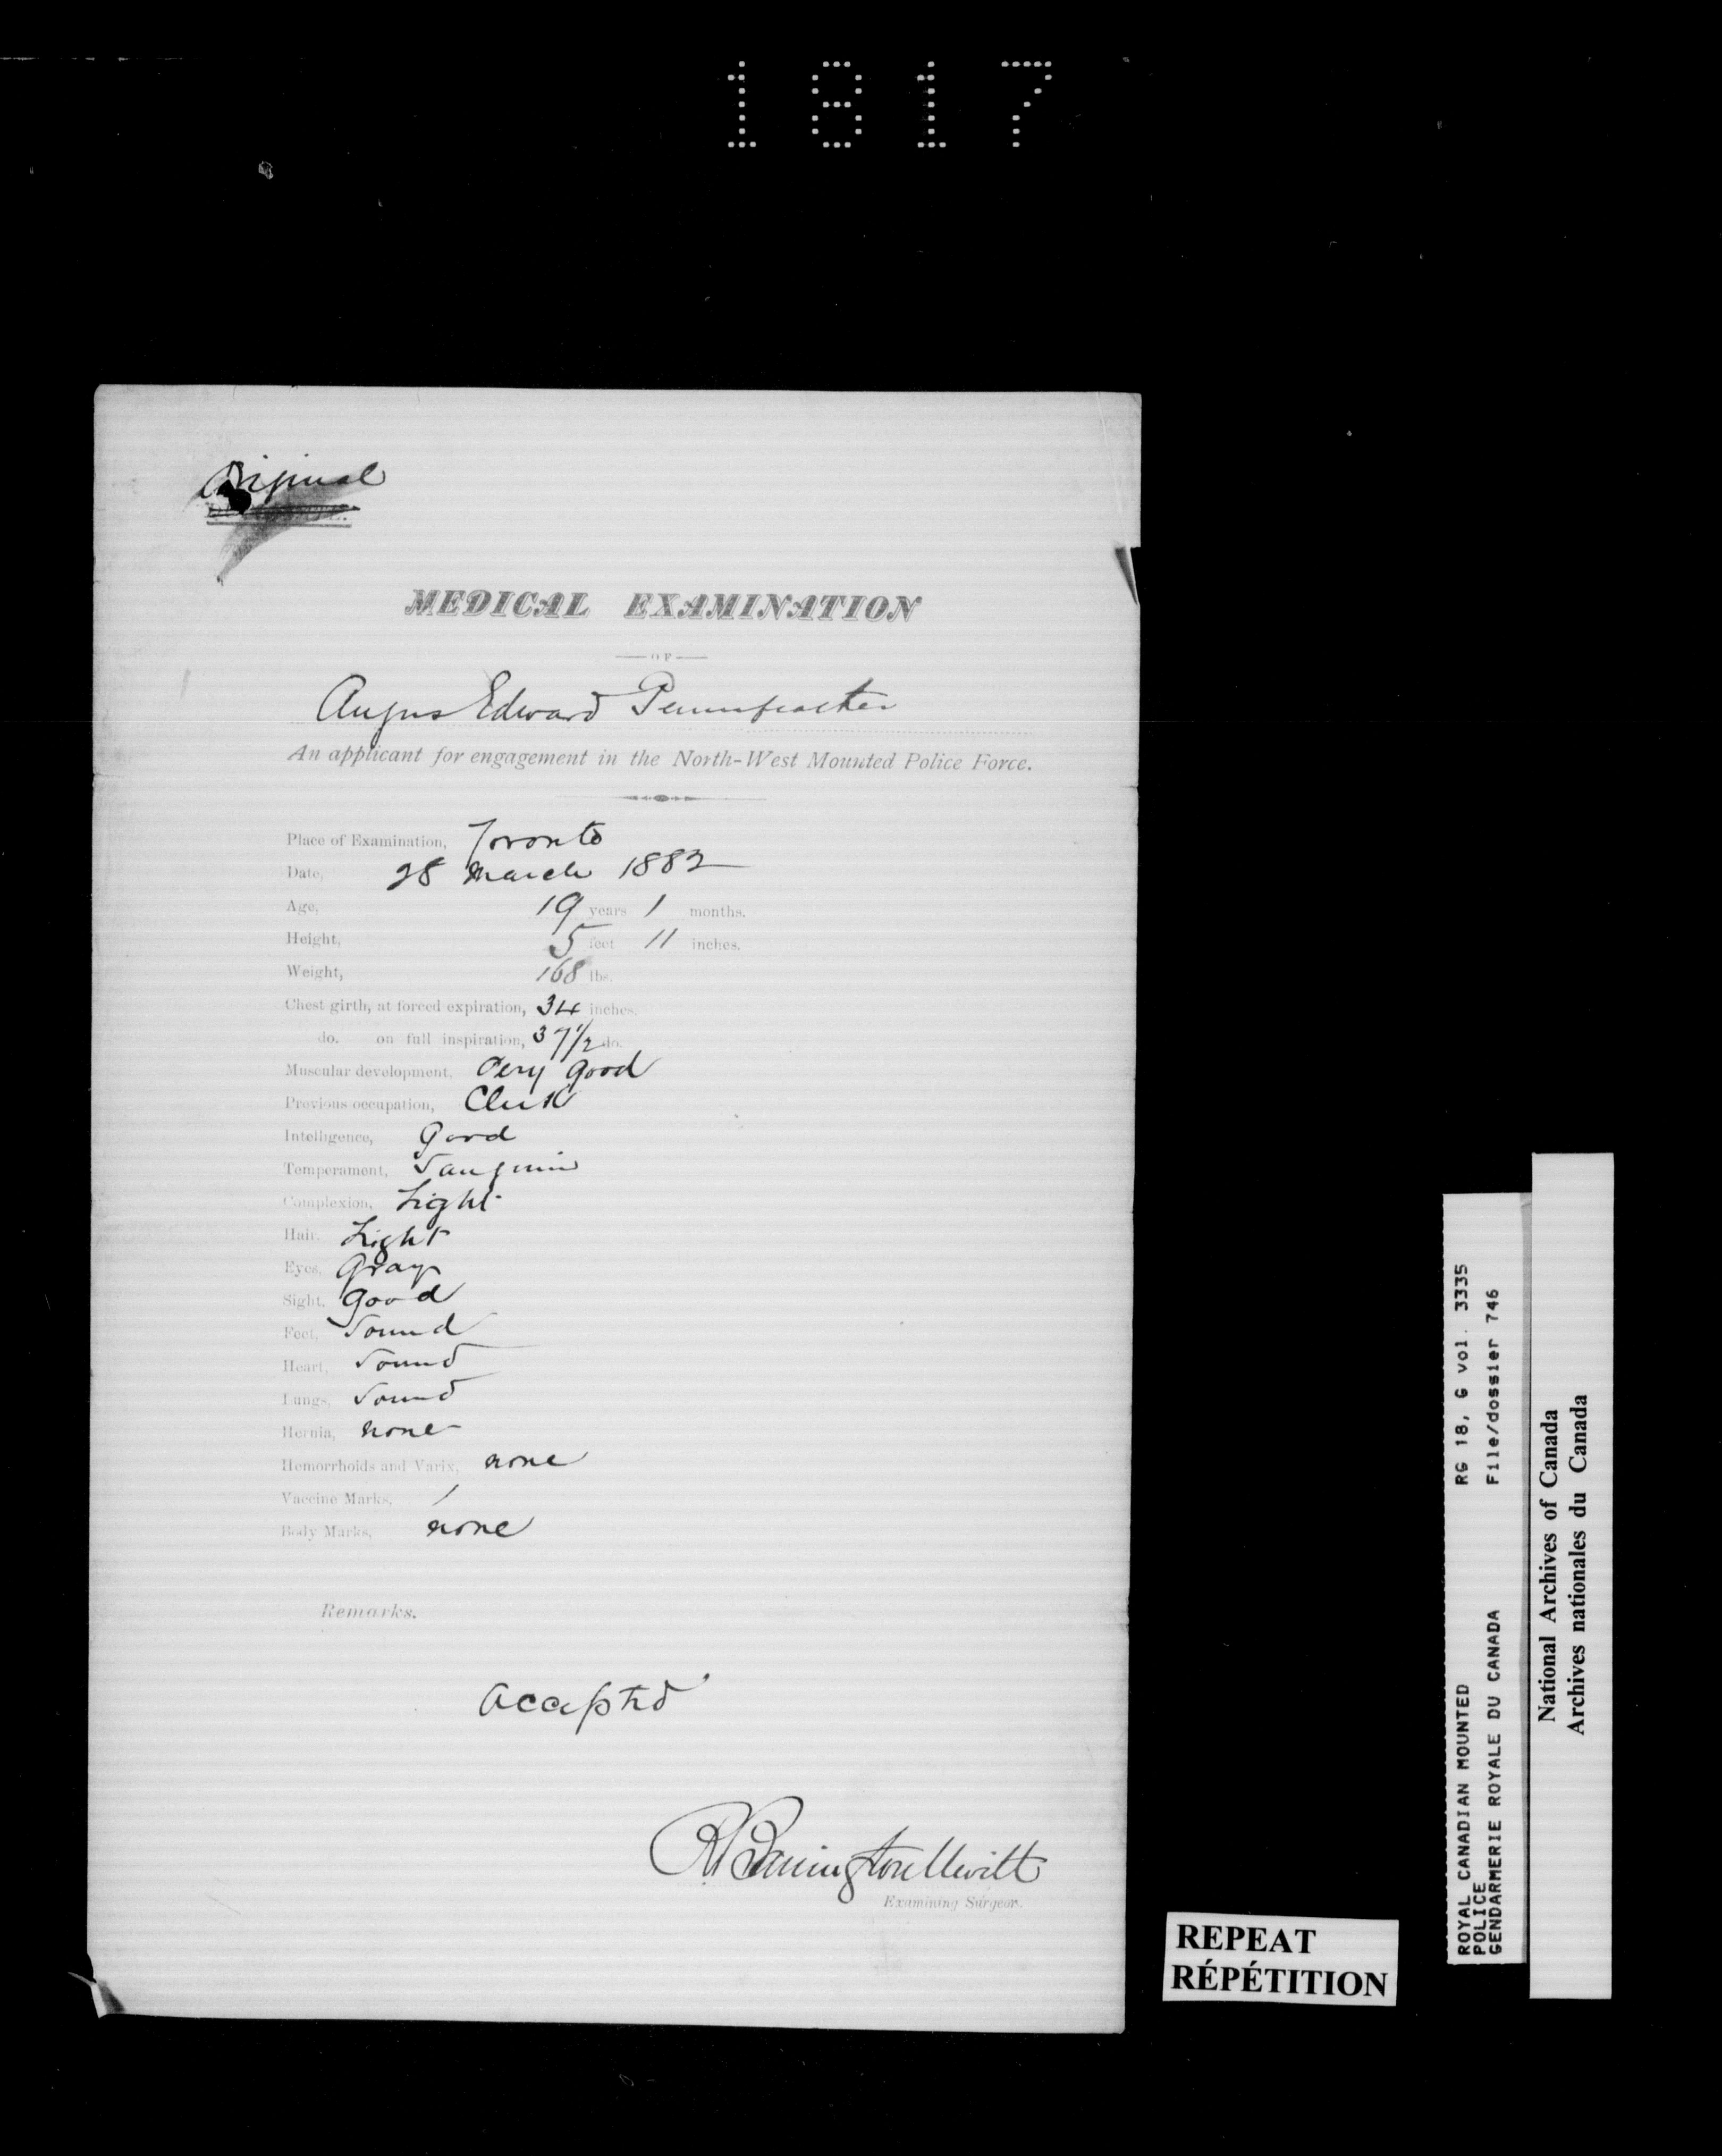 1817
Original
MEDICAL EXAMINATION
OF
Angus Edward Pennefeather
An applicant for engagement in the North-West Mounted Police Force.
Place of Examination, Toronto
Date, 28 March 1882
Age, 19 years 1 months.
Height, 5 feet 11 inches.
Weight, 168 lbs.
Chest girth, at forced expiration, 34 inches.
do. on full inspiration, 37 1/2 do.
Muscular development, Very good
Previous occupation, Clerk
Intelligence, Good
Temperament, Sanguin
Complexion, Light
Hair, Light
Eyes, Gray
Sight, Good
Feet, Sound
Heart, Sound
Lungs, Sound
Hernia, none
Hemorrhoids and Varix, none
Vaccine Marks, 1
Body Marks, none
Remarks.
Accepted
Examining Surgeon.
REPEAT
RÉPÉTITION
ROYAL CANADIAN MOUNTED RG 18, G vol. 3335
POLICE
GENDARMERIE ROYALE DU CANADA File/dossier 746
National Archives of Canada
Archives nationales du Canada